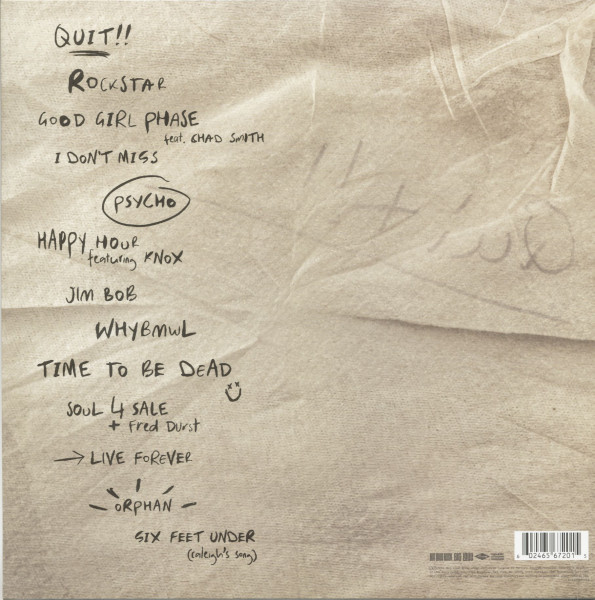 QUIT!!
ROCKSTAR
GOOD GIRL PHASE
feat. CHAD SMITH
I DON'T MISS
PSYCHO
HAPPY HOUR
featuring KNOX
JIM BOB
WHYBMWL
TIME TO BE DEAD
SOUL 4 SALE
+ Fred Durst
LIVE FOREVER
ORPHAN
SIX FEET UNDER
(caleigh's song)
6 02465 67201